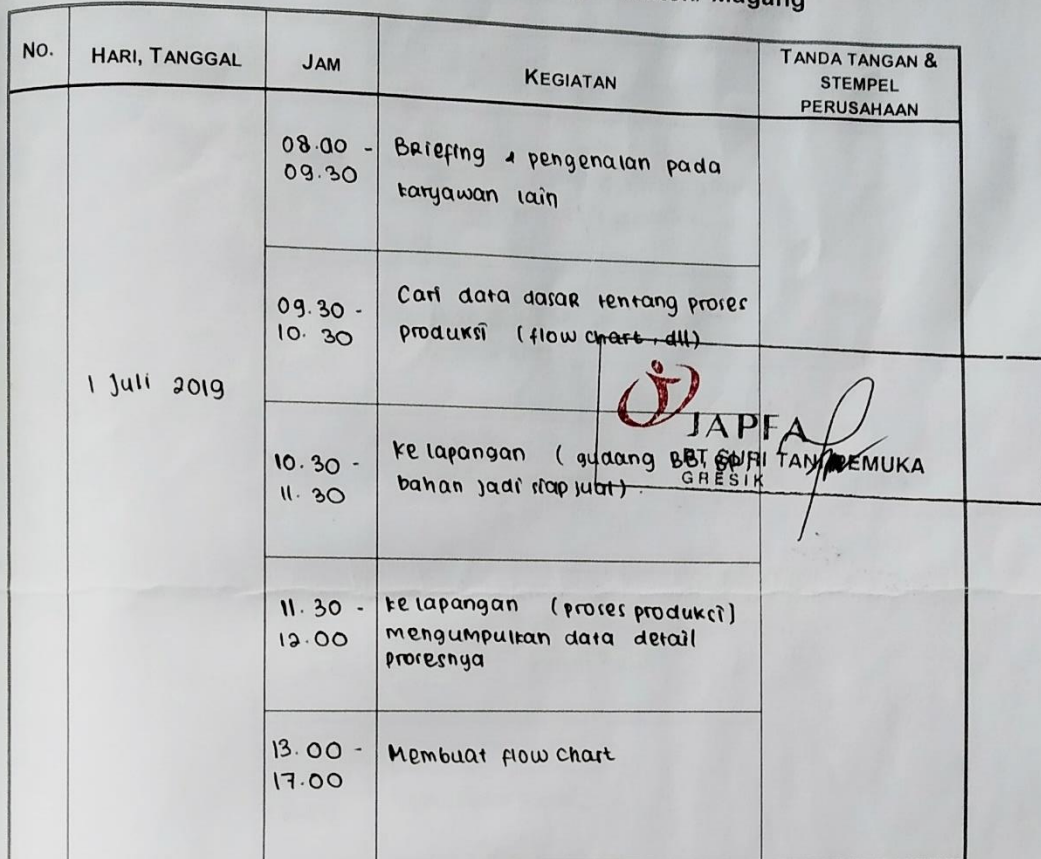 Magang
NO.
HARI, TANGGAL
JAM
KEGIATAN
TANDA TANGAN &
STEMPEL
PERUSAHAAN
1 Juli 2019
08.00 -
09.30
Briefing & pengenalan pada
karyawan lain
09.30 -
10.30
Cari data dasar tentang proses
produksi (flow chart, dll)
10.30 -
11.30
ke lapangan (gudang BB,
bahan jadi siap jual).
JAPFA
PT SURI TANI PEMUKA
GRESIK
11.30 -
12.00
ke lapangan (proses produksi)
mengumpulkan data detail
prosesnya
13.00 -
17.00
Membuat flow chart